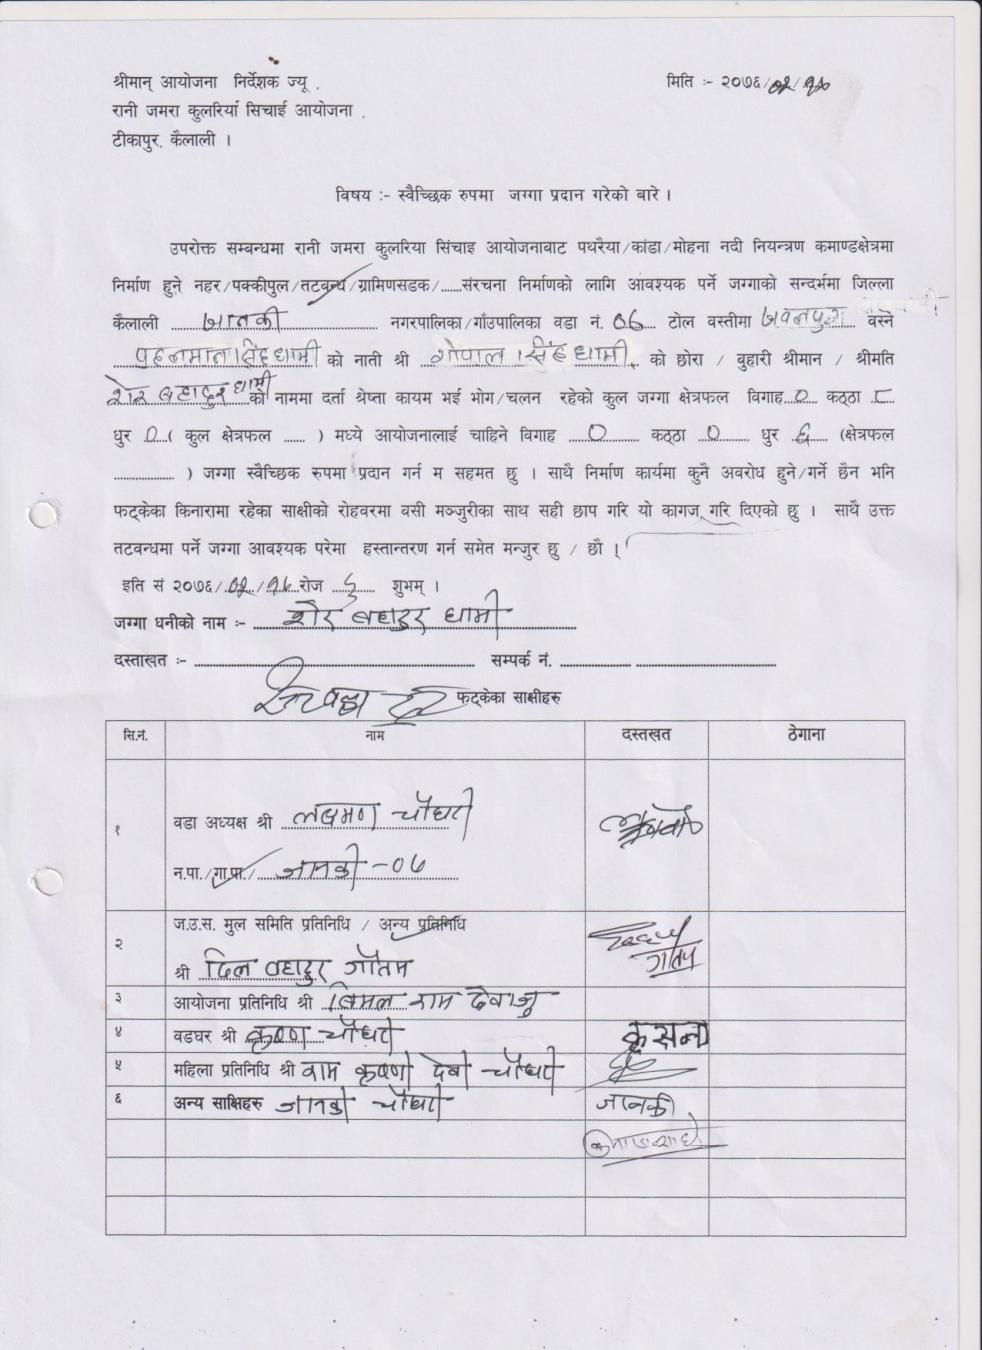 श्रीमान् आयोजना निर्देशक ज्यू , मिति :- २०७६/०२/१७
रानी जमरा कुलरियां सिचाई आयोजना ,
टीकापुर, कैलाली ।
विषय :- स्वैच्छिक रुपमा जग्गा प्रदान गरेको बारे ।
उपरोक्त सम्बन्धमा रानी जमरा कुलरिया सिंचाइ आयोजनाबाट पथरैया/कांडा/मोहना नदी नियन्त्रण कमाण्डक्षेत्रमा
निर्माण हुने नहर/पक्कीपुल/तटवन्ध/ग्रामिणसडक/......संरचना निर्माणको लागि आवश्यक पर्ने जग्गाको सन्दर्भमा जिल्ला
कैलाली जानकी नगरपालिका/गाँउपालिका वडा नं. ०७ टोल वस्तीमा वस्ने
को नाती श्री गोपाल सिंह धामी को छोरा / वुहारी श्रीमान / श्रीमति
शेर बहादुर धामी को नाममा दर्ता श्रेष्ता कायम भई भोग/चलन रहेको कुल जग्गा क्षेत्रफल विगाह ० कठ्ठा ८
धुर ० ( कुल क्षेत्रफल ...... ) मध्ये आयोजनालाई चाहिने विगाह ० कठ्ठा ० धुर ६ (क्षेत्रफल
.................. ) जग्गा स्वैच्छिक रुपमा प्रदान गर्न म सहमत छु । साथै निर्माण कार्यमा कुनै अवरोध हुने/गर्ने छैन भनि
फट्केका किनारामा रहेका साक्षीको रोहवरमा वसी मञ्जुरीका साथ सही छाप गरि यो कागज गरि दिएको छु । साथै उक्त
तटवन्धमा पर्ने जग्गा आवश्यक परेमा हस्तान्तरण गर्न समेत मन्जुर छु / छौ ।
इति सं २०७६/०२/१७ रोज शुभम् ।
जग्गा धनीको नाम :- शेर बहादुर धामी
दस्ताखत :- सम्पर्क नं.
फट्केका साक्षीहरु
सि.नं. नाम दस्तखत ठेगाना
१ वडा अध्यक्ष श्री लक्षमण चौधरी
न.पा./गा.पा./ जानकी -०७
२ ज.उ.स. मुल समिति प्रतिनिधि / अन्य प्रतिनिधि
श्री दिल बहादुर गौतम
३ आयोजना प्रतिनिधि श्री विमल राम देवाजु
४ वडघर श्री कृष्ण चौधरी कृसना
५ महिला प्रतिनिधि श्री राम कृष्णी देवी चौधरी
६ अन्य साक्षिहरु जानकी चौधरी जानकी